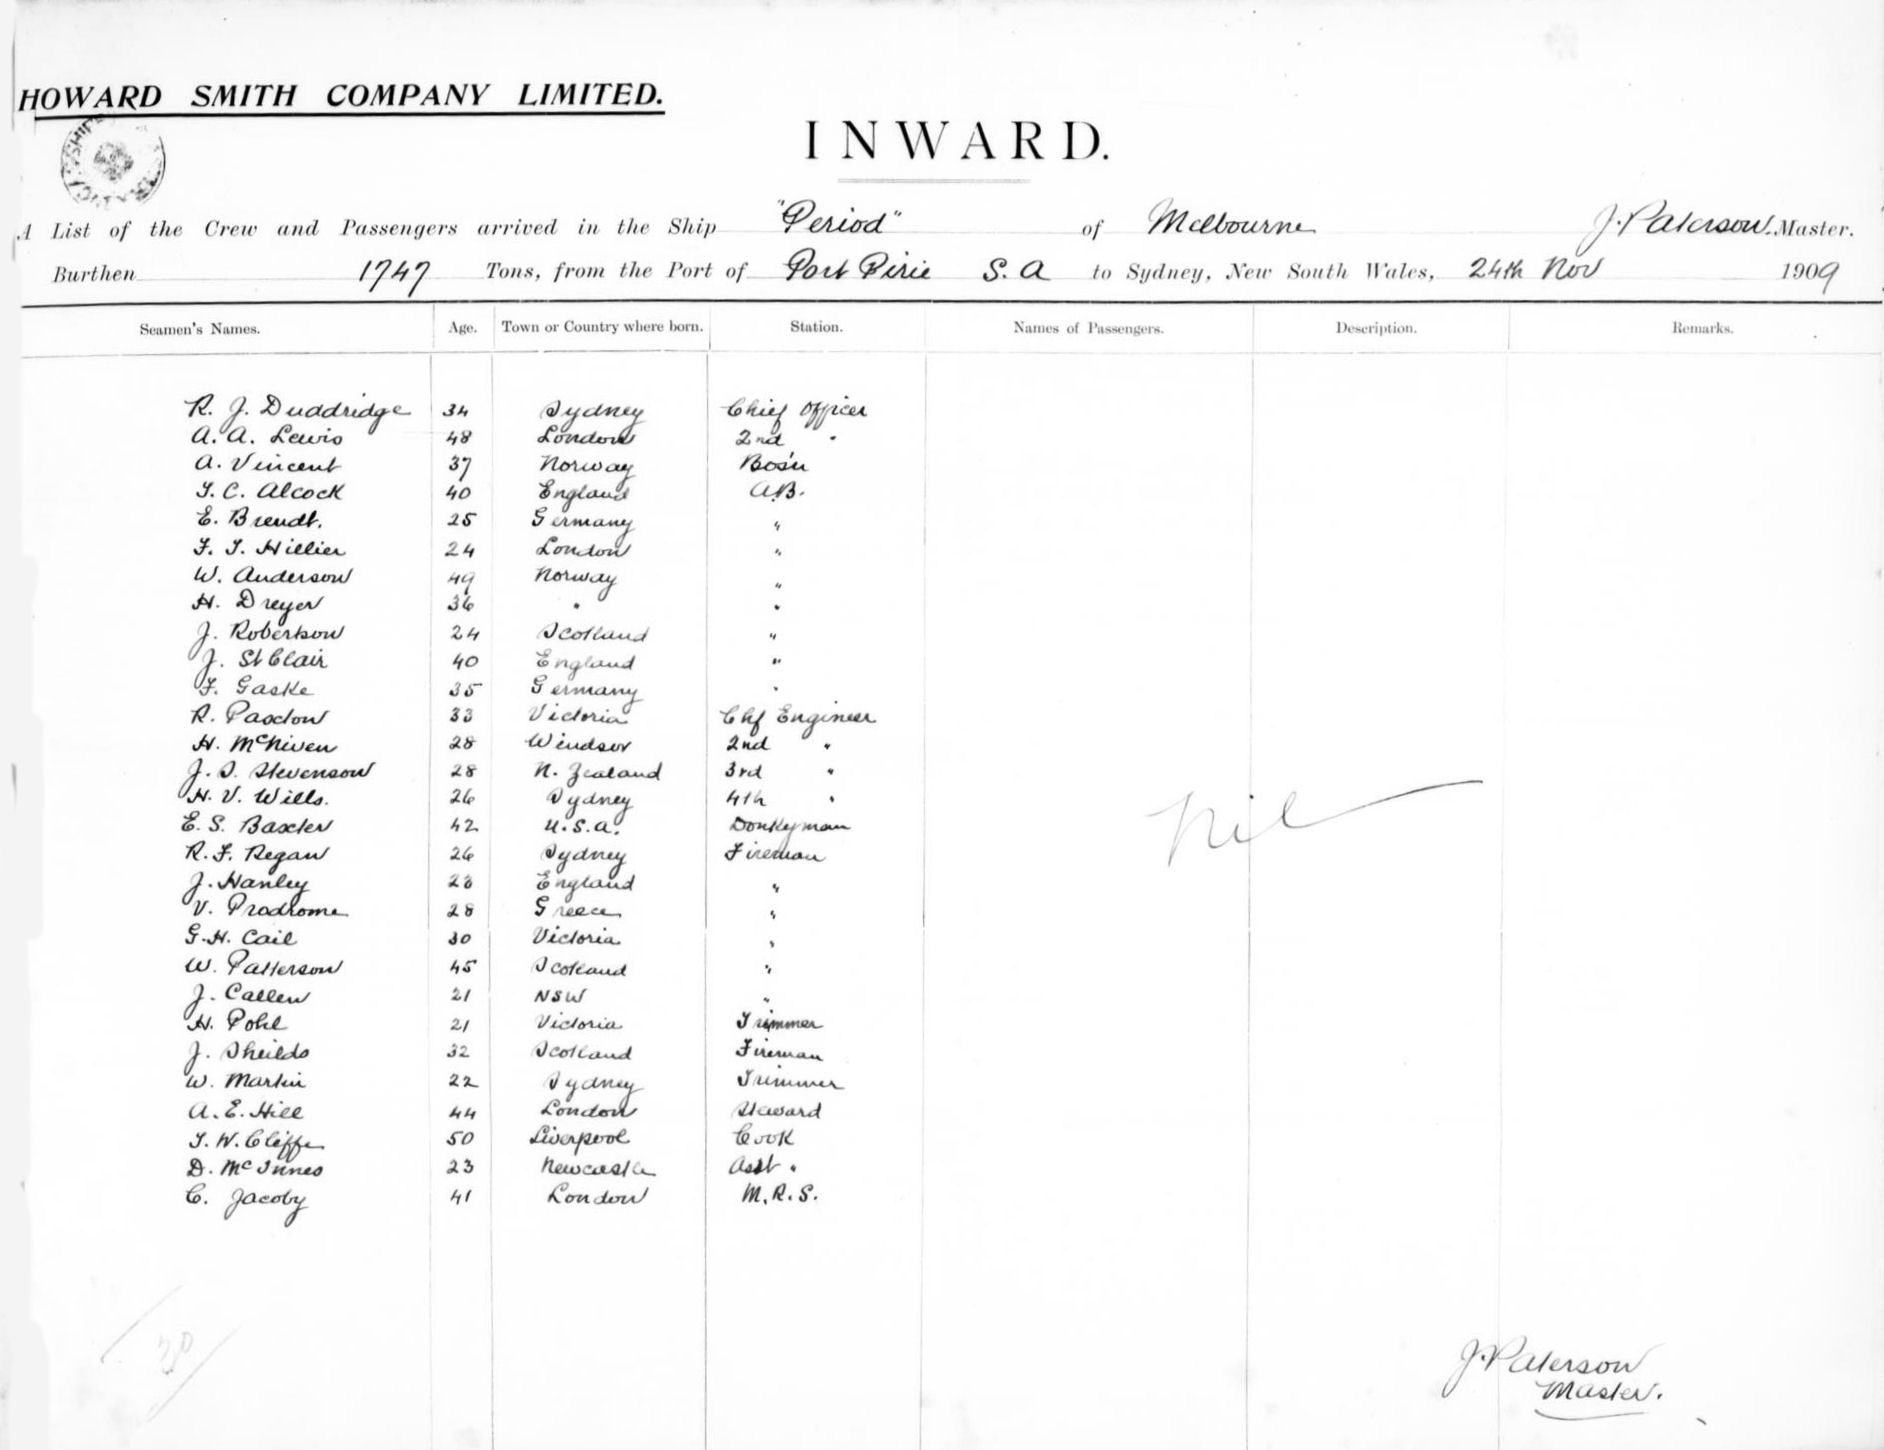 HOWARD SMITH COMPANY LIMITED.
INWARD.
A List of the Crew and Passengers arrived in the Ship "Period" of Melbourne J. Paterson. Master.
Burthen 1747 Tons, from the Port of Port Pirie S. A to Sydney, New South Wales, 24th Nov 1909
Seamen's Names. Age. Town or Country where born. Station. Names of Passengers. Description. Remarks.
R. J. Duddridge 34 Sydney Chief Officer
A. A. Lewis 48 London 2nd "
A. Vincent 37 Norway Bos'n
T. C. Alcock 40 England A.B.
E. Brendt. 25 Germany "
F. T. Hillier 24 London "
W. Anderson 49 Norway "
H. Dreyer 36 " "
J. Robertson 24 Scotland "
J. St Clair 40 England "
F. Gaske 35 Germany "
R. Paxton 33 Victoria Chf Engineer
H. McNiven 28 Windsor 2nd "
J. S. Stevenson 28 N. Zealand 3rd "
H. V. Wills. 26 Sydney 4th "
E. S. Baxter 42 U.S.A. Donkeyman
Nil
R. F. Regan 26 Sydney Fireman
J. Hanley England "
V. Prodrome 28 Greece "
G. H. Cail 30 Victoria "
W. Patterson 45 Scotland "
J. Callen 21 NSW "
H. Pohl 21 Victoria Trimmer
J. Sheilds 32 Scotland Fireman
W. Martin 22 Sydney Trimmer
A. E. Hill 44 London Steward
T. W. Cliffe 50 Liverpool Cook
D. McInnes 23 Newcastle Asst "
C. Jacoby 41 London M.R.S.
30
J. Paterson
Master.